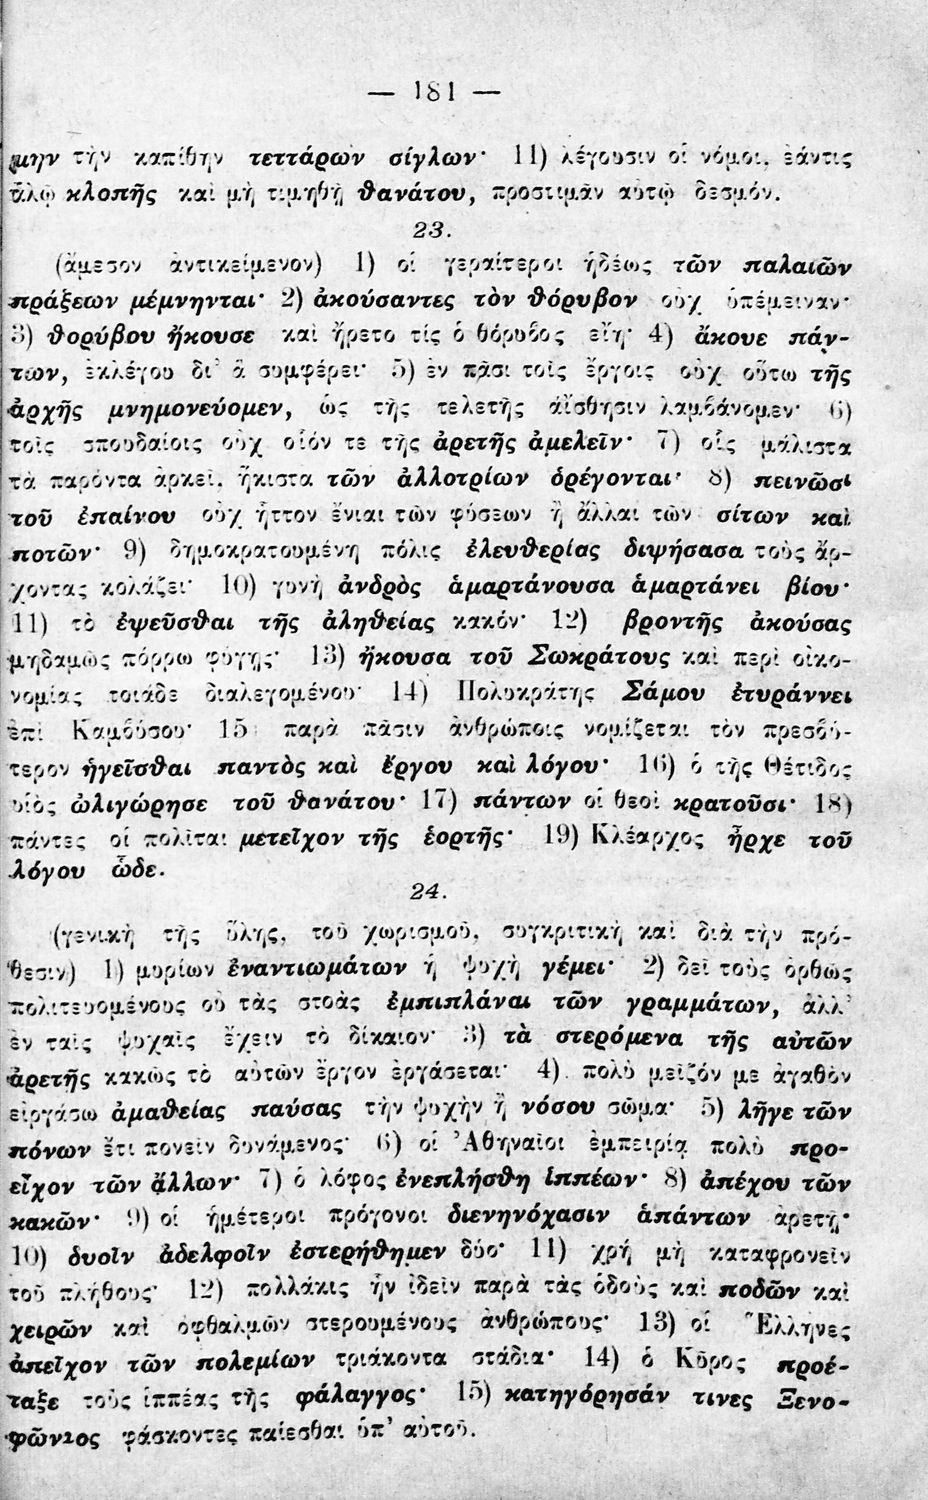 — 181 —
μην τὴν καπίθην τεττάρων σίγλων· 11) λέγουσιν οἱ νόμοι, ἐάντις
ἁλῷ κλοπῆς καὶ μὴ τιμηθῇ θανάτου, προστιμᾶν αὐτῷ δεσμόν.
23.
(ἄμεσον ἀντικείμενον) 1) οἱ γεραίτεροι ἡδέως τῶν παλαιῶν
πράξεων μέμνηνται· 2) ἀκούσαντες τὸν θόρυβον οὐχ ὑπέμειναν·
3) θορύβου ἤκουσε καὶ ἤρετο τίς ὁ θόρυβος εἴη· 4) ἄκουε πάν-
των, ἐκλέγου δι' ἃ συμφέρει· 5) ἐν πᾶσι τοῖς ἔργοις οὐχ οὕτω τῆς
ἀρχῆς μνημονεύομεν, ὡς τῆς τελετῆς αἴσθησιν λαμβάνομεν· 6)
τοῖς σπουδαίοις οὐχ οἷόν τε τῆς ἀρετῆς ἀμελεῖν· 7) οἷς μάλιστα
τὰ παρόντα ἀρκεῖ, ἥκιστα τῶν ἀλλοτρίων ὀρέγονται· 8) πεινῶσι
τοῦ ἐπαίνου οὐχ ἧττον ἔνιαι τῶν φύσεων ἢ ἄλλαι τῶν σίτων καὶ
ποτῶν· 9) δημοκρατουμένη πόλις ἐλευθερίας διψήσασα τοὺς ἄρ-
χοντας κολάζει· 10) γυνὴ ἀνδρὸς ἁμαρτάνουσα ἁμαρτάνει βίου·
11) τὸ ἐψεῦσθαι τῆς ἀληθείας κακόν· 12) βροντῆς ἀκούσας
μηδαμῶς πόρρω φύγῃς· 13) ἤκουσα τοῦ Σωκράτους καὶ περὶ οἰκο-
νομίας τοιάδε διαλεγομένου· 14) Πολυκράτης Σάμου ἐτυράννει
ἐπὶ Καμβύσου· 15) παρὰ πᾶσιν ἀνθρώποις νομίζεται τὸν πρεσβύ-
τερον ἡγεῖσθαι παντὸς καὶ ἔργου καὶ λόγου· 16) ὁ τῆς Θέτιδος
υἱὸς ὠλιγώρησε τοῦ θανάτου· 17) πάντων οἱ θεοὶ κρατοῦσι· 18)
πάντες οἱ πολῖται μετεῖχον τῆς ἑορτῆς· 19) Κλέαρχος ἦρχε τοῦ
λόγου ὧδε.
24.
(γενικὴ τῆς ὕλης, τοῦ χωρισμοῦ, συγκριτικὴ καὶ διὰ τὴν πρό-
θεσιν) 1) μυρίων ἐναντιωμάτων ἡ ψυχὴ γέμει· 2) δεῖ τοὺς ὀρθῶς
πολιτευομένους οὐ τὰς στοὰς ἐμπιπλάναι τῶν γραμμάτων, ἀλλ'
ἐν ταῖς ψυχαῖς ἔχειν τὸ δίκαιον· 3) τὰ στερόμενα τῆς αὑτῶν
ἀρετῆς κακῶς τὸ αὑτῶν ἔργον ἐργάσεται· 4) πολὺ μεῖζόν με ἀγαθὸν
εἰργάσω ἀμαθείας παύσας τὴν ψυχὴν ἢ νόσου σῶμα· 5) λῆγε τῶν
πόνων ἔτι πονεῖν δυνάμενος· 6) οἱ Ἀθηναῖοι ἐμπειρίᾳ πολὺ προ-
εῖχον τῶν ἄλλων· 7) ὁ λόφος ἐνεπλήσθη ἱππέων· 8) ἀπέχου τῶν
κακῶν· 9) οἱ ἡμέτεροι πρόγονοι διενηνόχασιν ἁπάντων ἀρετῇ·
10) δυοῖν ἀδελφοῖν ἐστερήθημεν δύο· 11) χρή μὴ καταφρονεῖν
τοῦ πλήθους· 12) πολλάκις ἦν ἰδεῖν παρὰ τὰς ὁδοὺς καὶ ποδῶν καὶ
χειρῶν καὶ ὀφθαλμῶν στερουμένους ἀνθρώπους· 13) οἱ Ἕλληνες
ἀπεῖχον τῶν πολεμίων τριάκοντα στάδια· 14) ὁ Κῦρος προέ-
ταξε τοὺς ἱππέας τῆς φάλαγγος· 15) κατηγόρησάν τινες Ξενο-
φῶντος φάσκοντες παίεσθαι ὑπ' αὐτοῦ.